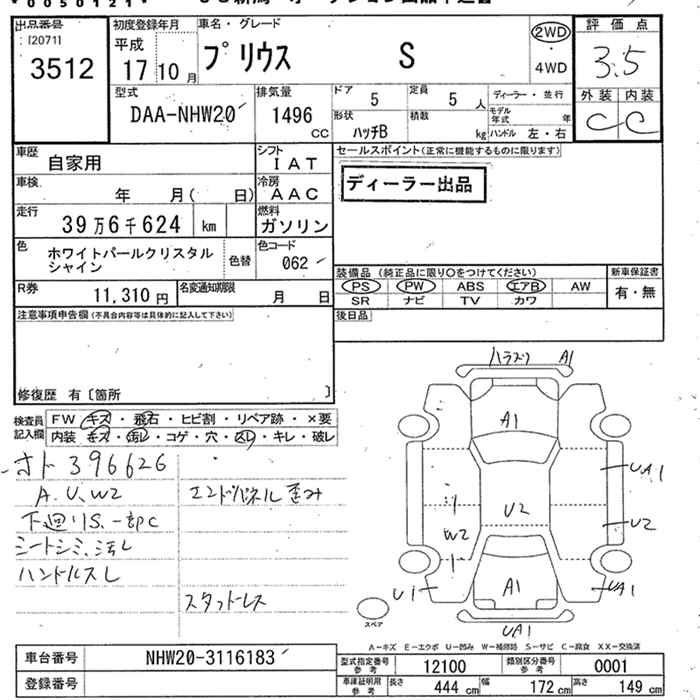 *0050121*
出品番号
120711
3512
初度登録年月
平成
17 10 月
車名・グレード
プリウス S
2WD
・
4WD
評価点
3.5
外装 内装
C C
型式
DAA-NHW20
排気量
1496
CC
ドア 5
定員 5 人
ディーラー・並行
形状
ハッチB
積載
kg
モデル年式 年
ハンドル 左・右
車歴
自家用
シフト
IAT
車検
年 月( 日)
冷房
AAC
走行
39万6千624 km
燃料
ガソリン
色
ホワイトパールクリスタル
シャイン
色替
色コード
062
R券
11,310 円
名変通知期限
月 日
セールスポイント(正常に機能するものに限ります)
ディーラー出品
装備品 (純正品に限り○をつけてください)
PS PW ABS エアB AW
SR ナビ TV カワ
新車保証書
有・無
後日品
注意事項申告欄(不具合内容等は具体的に記入して下さい)
修復歴 有〔箇所 〕
検査員
記入欄
FW キズ・飛石・ヒビ割・リペア跡・×要
内装 キズ・汚レ・コゲ・穴・スレ・キレ・破レ
オド 396626
A.U.W2
下廻りS.一部C
シートシミ、汚レ
ハンドルスレ
エンドパネル歪み
スタッドレス
A1
A1
UA1
U2
U2
W2
U1
A1
UA1
UA1
スペア
A-キズ E-エクボ U-凹み W-補修跡 S-サビ C-腐食 XX-交換済
車台番号
NHW20-3116183
登録番号
型式指定番号
参考
12100
類別区分番号
参考
0001
車庫証明用
参考
長さ 444 cm
幅 172 cm
高さ 149 cm